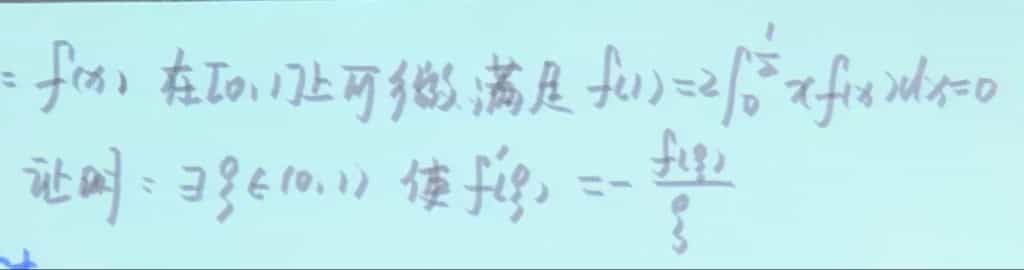 = f(x) 在[0,1]上可微.满足 f(1)=2∫₀^{1/2} xf(x)dx=0
证明:∃ξ∈(0,1) 使 f'(ξ) = - f(ξ)/ξ